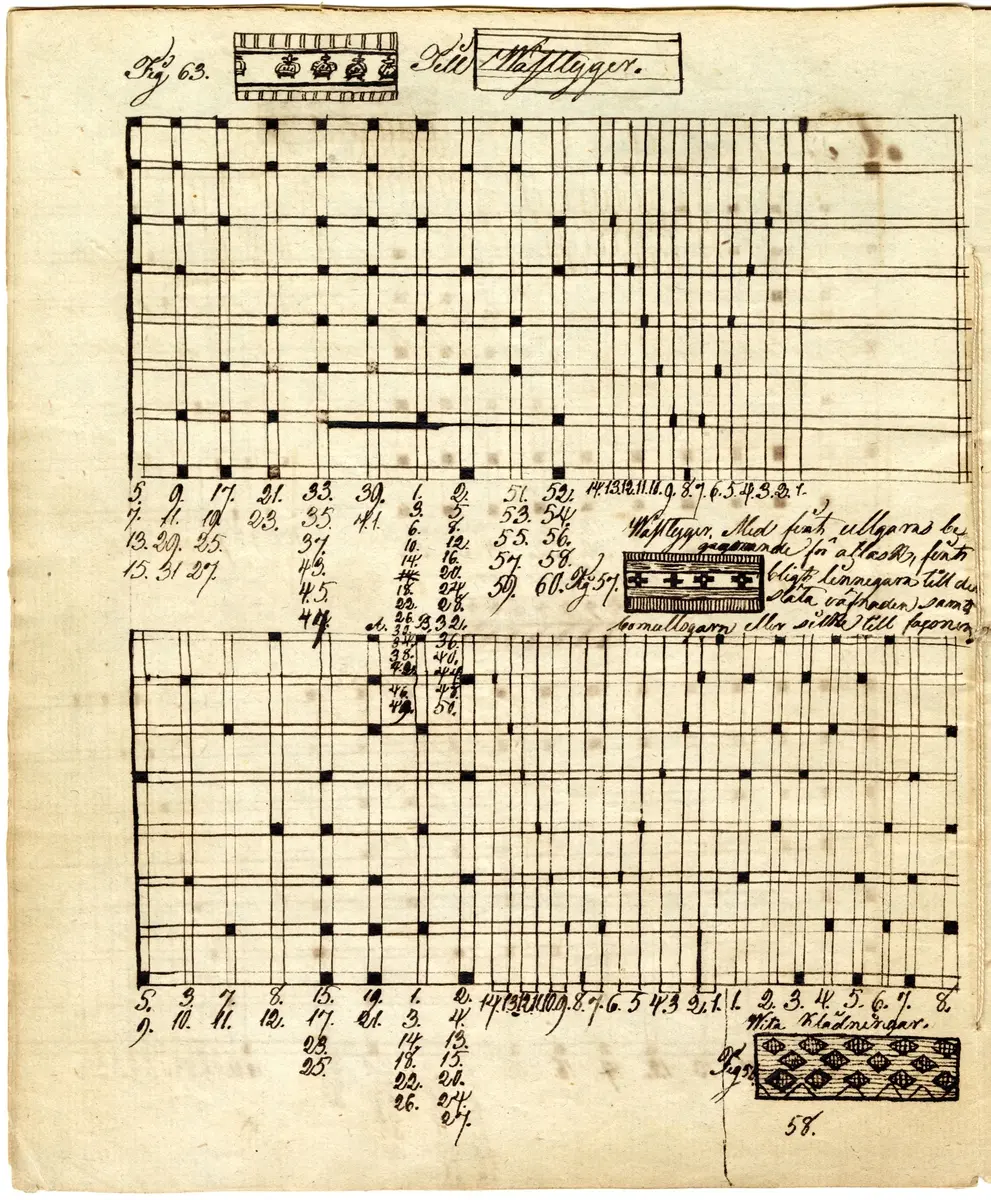 Fig 63.
Till
Wäfttyger.
5. 9. 17. 21. 33. 39. 1. 2. 51. 52. 14.13.12.11.10.9.8.7.6.5.4.3.2.1.
7. 11. 19. 23. 35. 41. 3. 5. 53. 54.
13. 29. 25. 37. 6. 8. 55. 56.
15. 31 27. 43. 10. 12. 57. 58.
45. 14. 16. 59. 60.
47 18. 20.
22. 24
26. 28.
32.
36.
38. 40.
44
46. 48.
49. 50.
Wäfttyger, Med fint ullgarns be
för atlask, fint
Fig 57.
blegt linnegarn till de
släta väfnaden samt
bomullsgarn eller silke till façonen
A. B.
5. 3. 7. 8. 15. 19. 1. 2. 14.13.12.11.10.9.8.7.6.5.4.3.2.1. 1. 2. 3. 4. 5. 6. 7. 8.
9. 10. 11. 12. 17. 21. 3. 4.
23. 14. 13.
25. 18. 15.
22. 20.
26. 24.
27.
Wita Klädningar.
Fig 58
58.